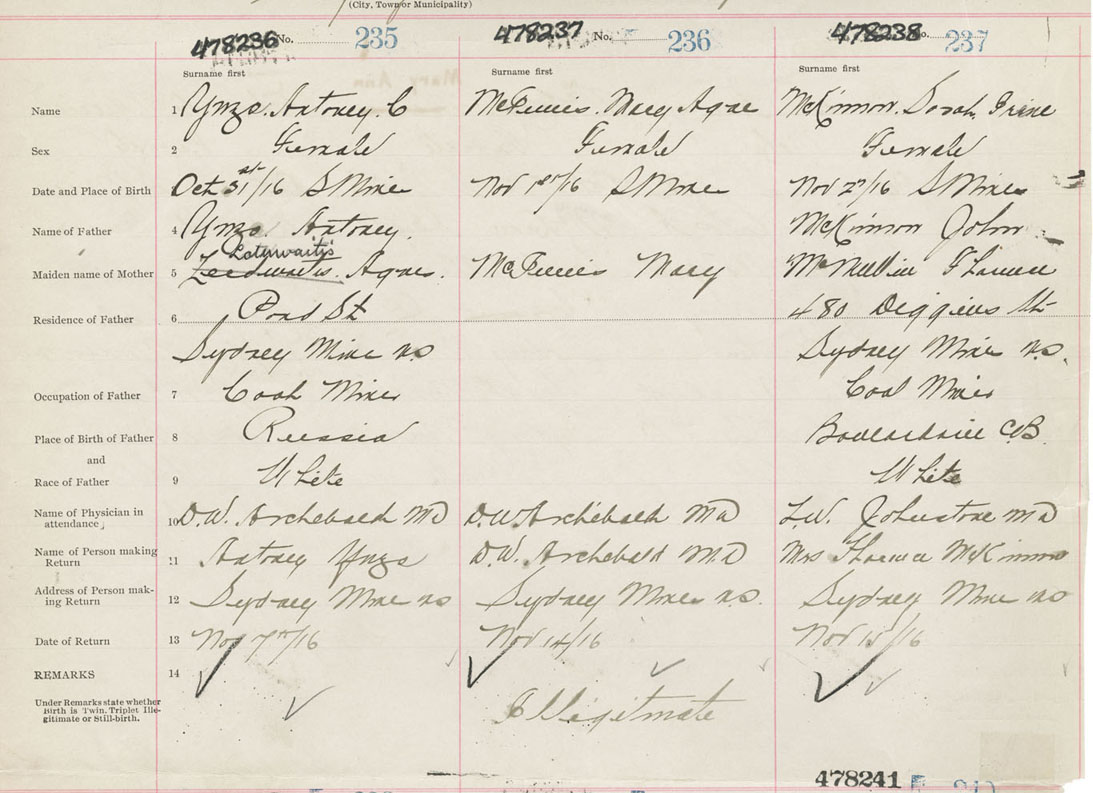 (City, Town or Municipality)
478236 No. 235
478237 No. 236
478238 No. 237
Surname first Surname first Surname first
Name 1 Ynzo. Antoney. C McPennies. Mary Agne McKinnon. Sorah. Irine
Sex 2 Female Female Female
Date and Place of Birth Oct 31st/16 S Mine Nov 1st/16 S Mine Nov 2nd/16 S Mines
Name of Father 4 Ynzo Antoney. McKinnon John
Maiden name of Mother 5 Agnes. Mary McMullin
Residence of Father 6 Pond St 480 Diggins St
Sydney Mine NS Sydney Mines N.S.
Occupation of Father 7 Coal Miner Coal Miner
Place of Birth of Father 8 Russia C.B.
and
Race of Father 9 White White
Name of Physician in
attendance 10 D.W. Archebald MD D.W Archebald MD L.W. Johnstone MD
Name of Person making
Return 11 Antoney Ynzo D.W. Archebald M.D Mrs McKinnon
Address of Person mak-
ing Return 12 Sydney Mine NS Sydney Mines N.S. Sydney Mine NS
Date of Return 13 Nov 7th/16 Nov 14/16 Nov 15/16
REMARKS 14
Under Remarks state whether
Birth is Twin, Triplet Ille-
gitimate or Still-birth.
Illegitmate
478241